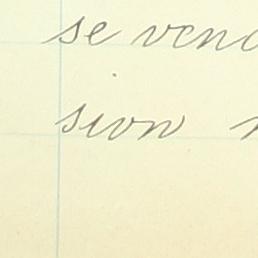 se vend
sion